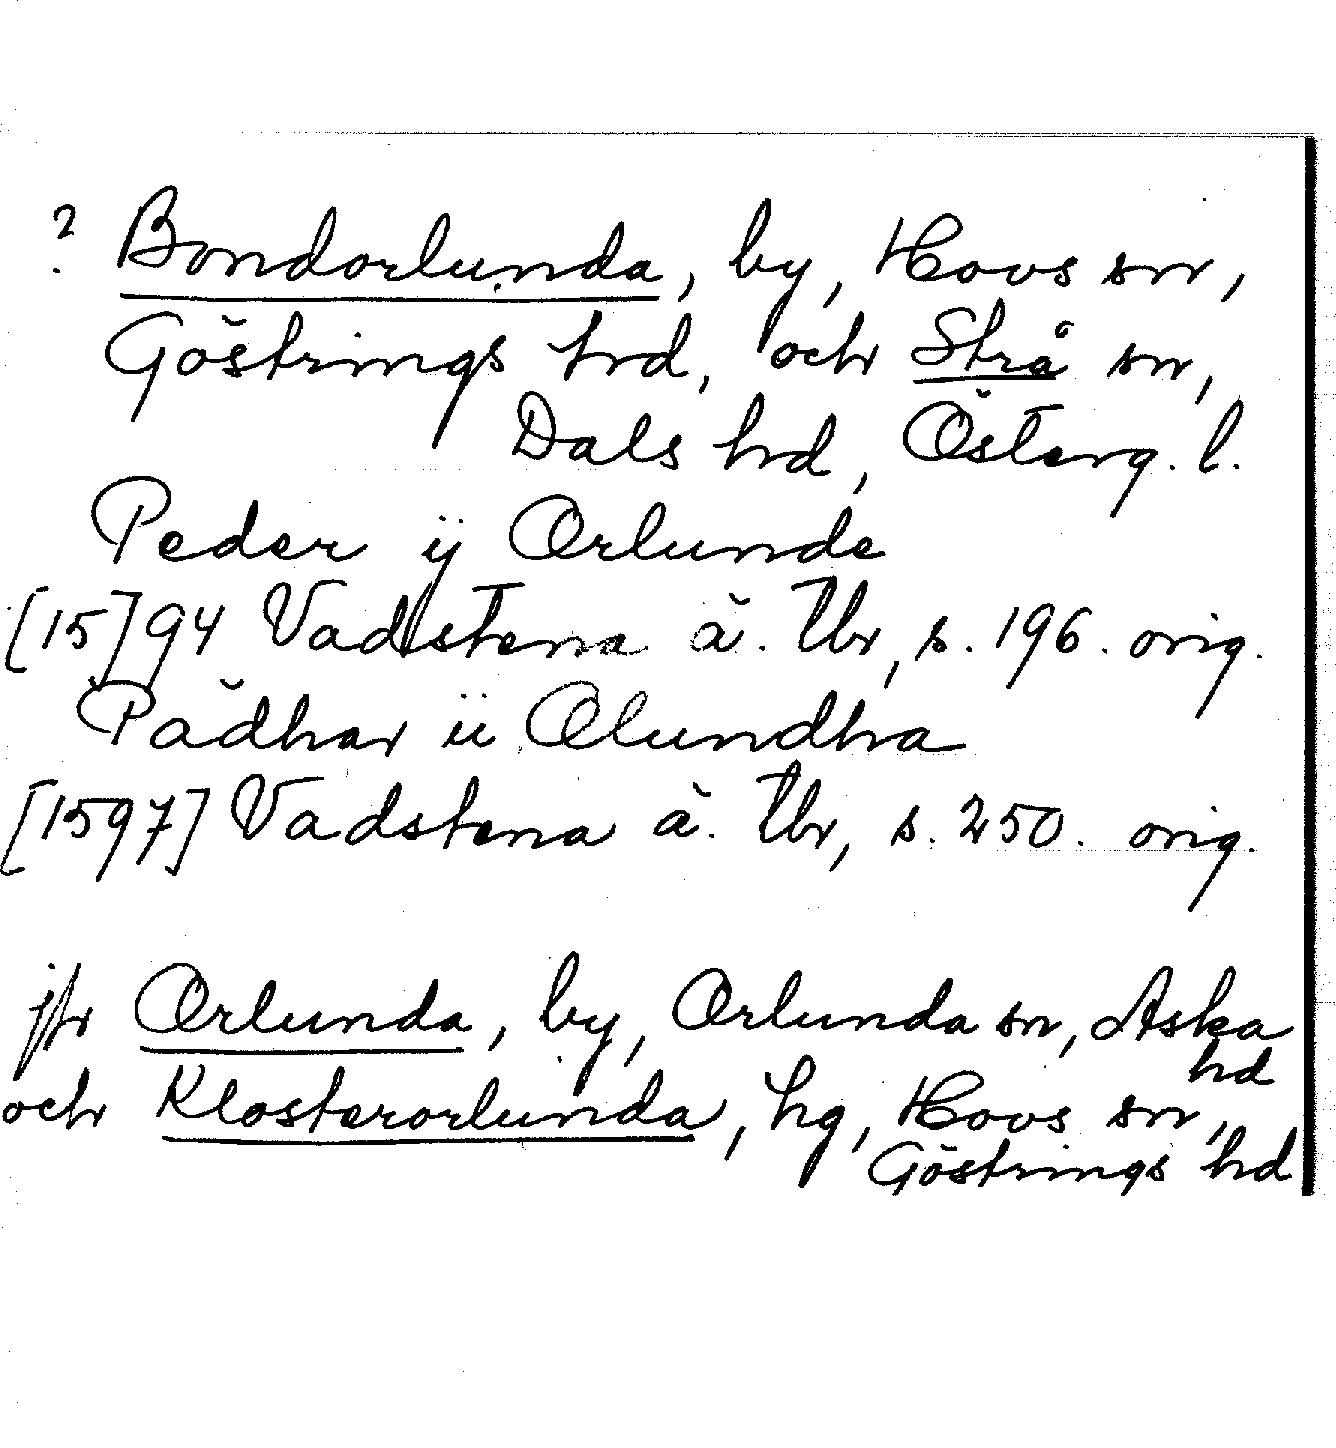 ? Bondorlunda, by, Hovs sn,
Göstrings hd, och Strå sn,
Dals hd, Österg. l.
Peder ÿ Orlunde
[15]94 Vadstena ä. Tbr, s. 196. orig.
Pädhar ü Olundha
[1597] Vadstena ä. Tbr, s. 250. orig.
jfr Orlunda, by, Orlunda sn, Aska
hd
och Klosterorlunda, hg, Hovs sn,
Göstrings hd